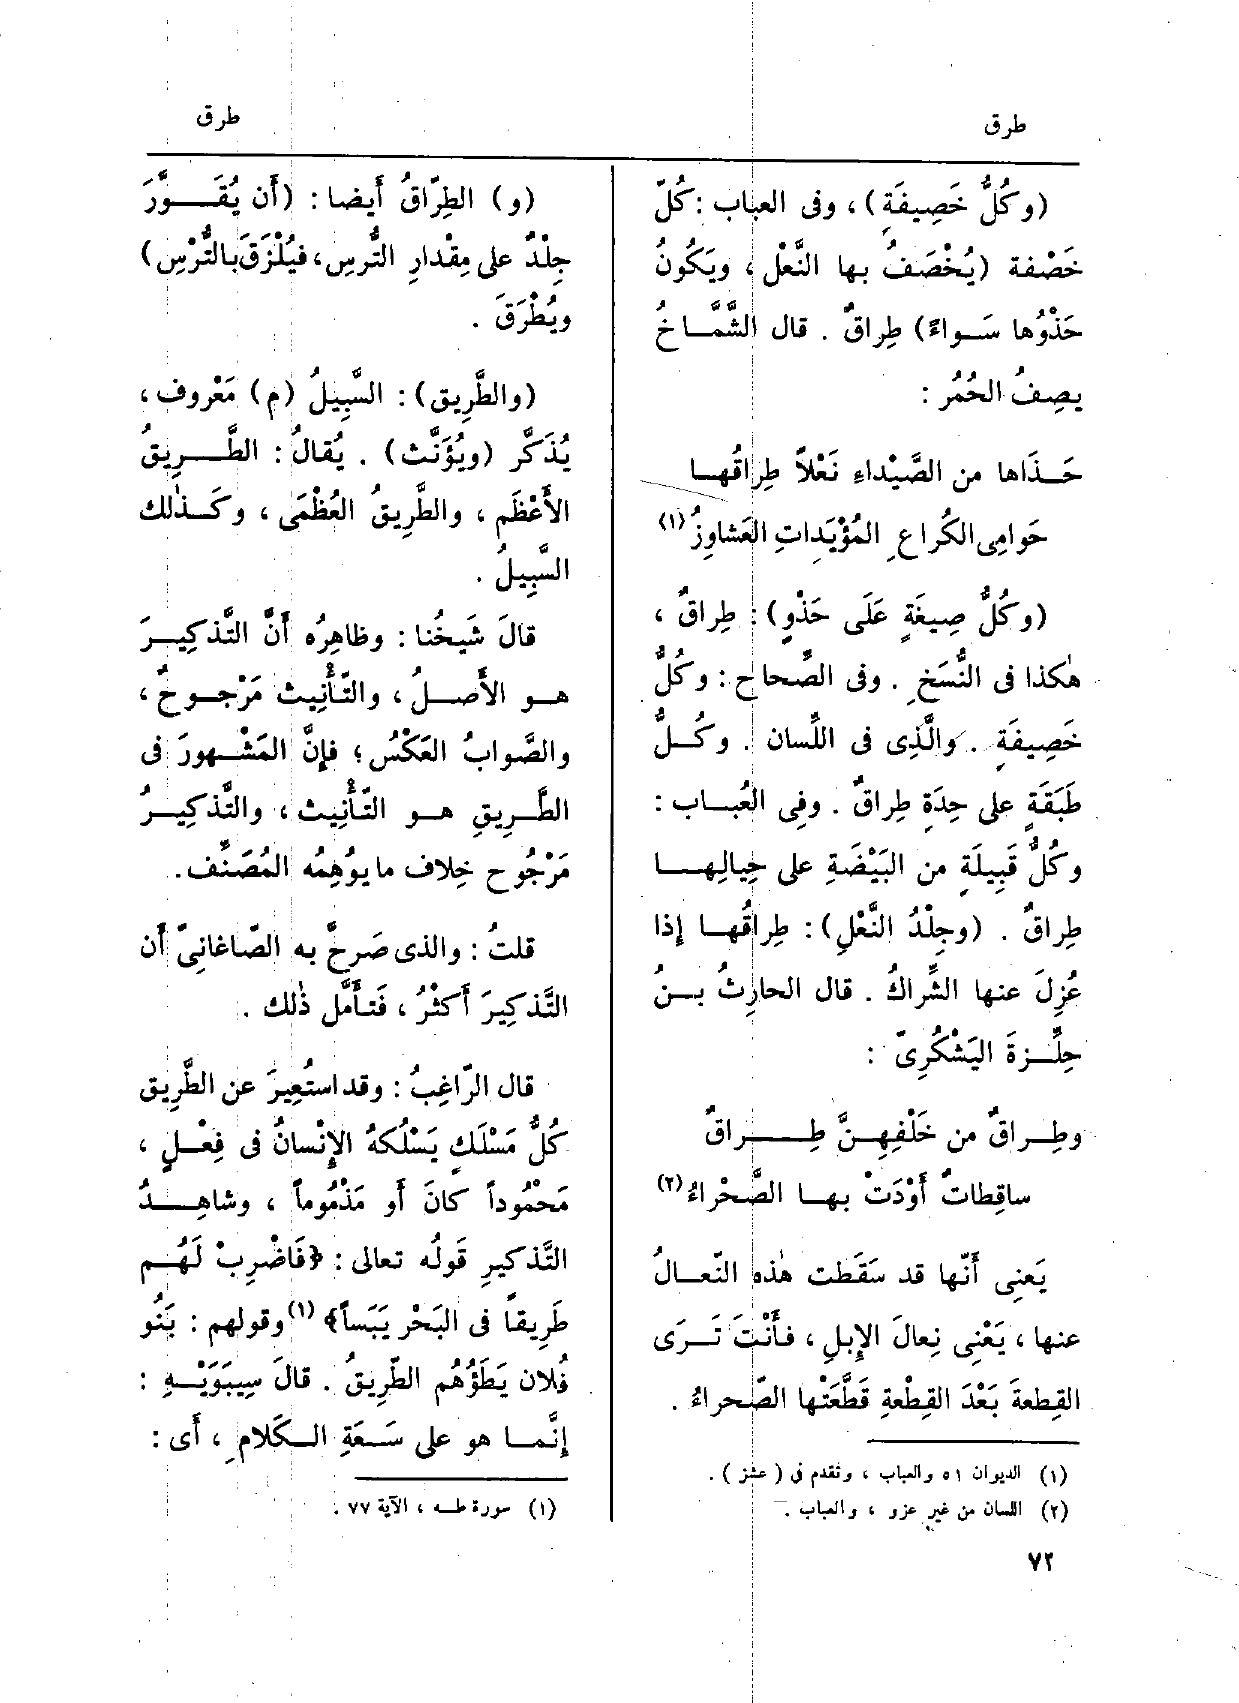 طرق
طرق
(وكُلُّ خَصِيفَةٍ) ، وفى العباب : كُلّ
خَصْفة (يُخْصَفُ بها النَّعْل ، ويَكُونُ
حَذْوُها سَواءً) طِراقٌ . قال الشَّمَّاخُ
يصِفُ الحُمُر :
حَذَاها من الصَّيْداءِ نَعْلاً طِراقُها
حَوامِى الكُراعِ المُؤْيَداتِ العَشاوِزُ (١)
(وكُلُّ صِيغَةٍ عَلَى حَذْوٍ) : طِراقٌ ،
هٰكذا فى النُّسَخِ . وفى الصِّحاح : وكُلُّ
خَصِيفَةٍ . والَّذِى فى اللِّسان . وكُلُّ
طَبَقَةٍ على حِدَةٍ طِراقٌ . وفِى العُباب :
وكُلُّ قَبِيلَةٍ من البَيْضَةِ على حِيالِها
طِراقٌ . (وجِلْدُ النَّعْلِ) : طِراقُها إذا
عُزِلَ عنها الشِّراكُ . قال الحارِثُ بنُ
حِلِّزةَ اليَشْكُرِىّ :
وطِراقٌ من خَلْفِهِنَّ طِراقٌ
ساقِطاتٌ أَوْدَتْ بها الصَّحْراءُ (٢)
يَعنِى أَنّها قد سَقَطت هٰذه النِّعالُ
عنها ، يَعْنِى نِعالَ الإِبلِ ، فأَنْتَ تَرَى
القِطعةَ بَعْدَ القِطْعةِ قَطَّعَتْها الصّحراءُ .
(١) الديوان ٥١ والعباب ، وتقدم فى ( عشز ) .
(٢) اللسان من غير عزو ، والعباب .
(و) الطِّرَاقُ أَيضا : (أَن يُقَوَّرَ
جِلْدٌ على مِقْدارِ التُّرسِ ، فيُلْزَقَ بالتُّرْسِ)
ويُطْرَقَ .
(والطَّرِيق) : السَّبِيلُ (م) مَعْروف ،
يُذَكَّر (ويُؤَنَّث) . يُقالُ : الطَّرِيقُ
الأَعْظَم ، والطَّرِيقُ العُظْمَى ، وكَذٰلك
السَّبِيلُ .
قالَ شَيخُنا : وظاهِرُه أَنَّ التَّذكِيرَ
هو الأَصلُ ، والتَّأْنِيث مَرْجوحٌ ،
والصَّوابُ العَكْس ؛ فإِنَّ المَشْهورَ فى
الطَّرِيقِ هو التّأْنِيث ، والتَّذكِيرُ
مَرْجُوح خِلاف ما يوُهِمُه المُصَنِّف.
قلتُ : والذى صَرحَّ به الصّاغانِىّ أَن
التَّذكِيرَ أَكثْرُ ، فَتأَمَّل ذٰلك .
قال الرّاغِبُ : وقد استُعِيرَ عن الطَّرِيق
كُلُّ مَسْلَكٍ يَسْلُكهُ الإِنْسانُ فى فِعْلٍ ،
مَحْمُوداً كانَ أَو مَذْمُوماً ، وشاهِدُ
التَّذكيرِ قَولُه تعالى : ﴿فَاضْرِبْ لَهُم
طَرِيقاً فى البَحْر يَبَساً﴾ (١) وقولهم : بَنُو
فُلان يَطَؤُهُم الطّرِيقُ . قالَ سِيبَوَيْهِ :
إِنَّما هو على سَعَةِ الكَلامِ ، أَى :
(١) سورة طه ، الآية ٧٧ .
٧٢